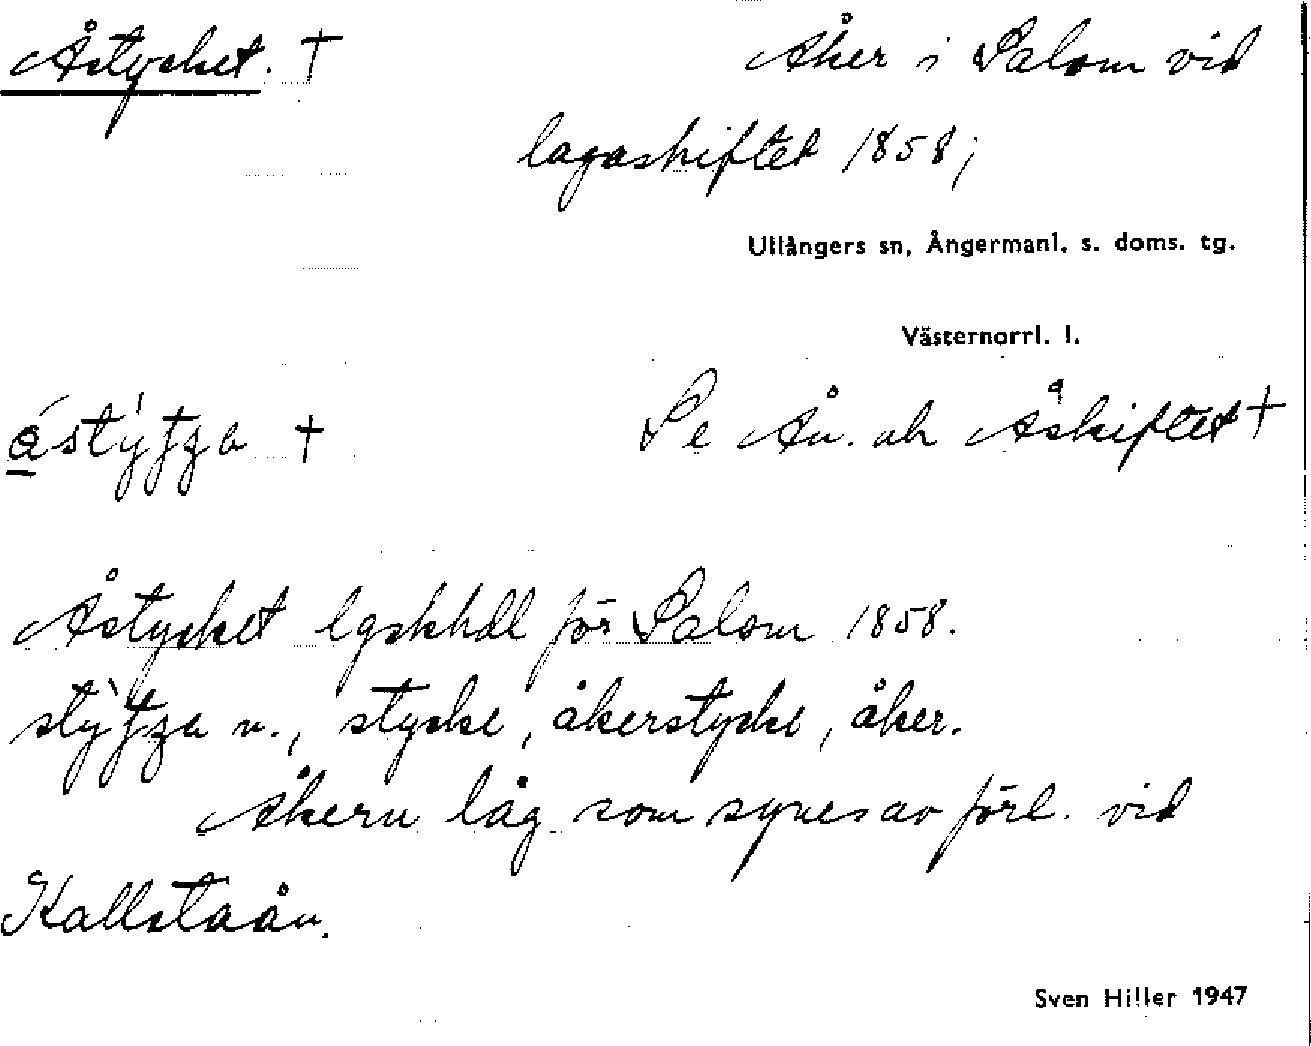 Åstycket. † Åker i Salom vid
lagaskiftet 1858;
Ullångers sn, Ångermanl. s. doms. tg.
Västernorrl. l.
† Se Ån. ok Åskiftet †
Åstycket lgskhdl för Salom 1858.
n., stycke, åkerstycke, åker.
Åkern låg som synes av förl. vid
Kallstaån.
Sven Hiller 1947